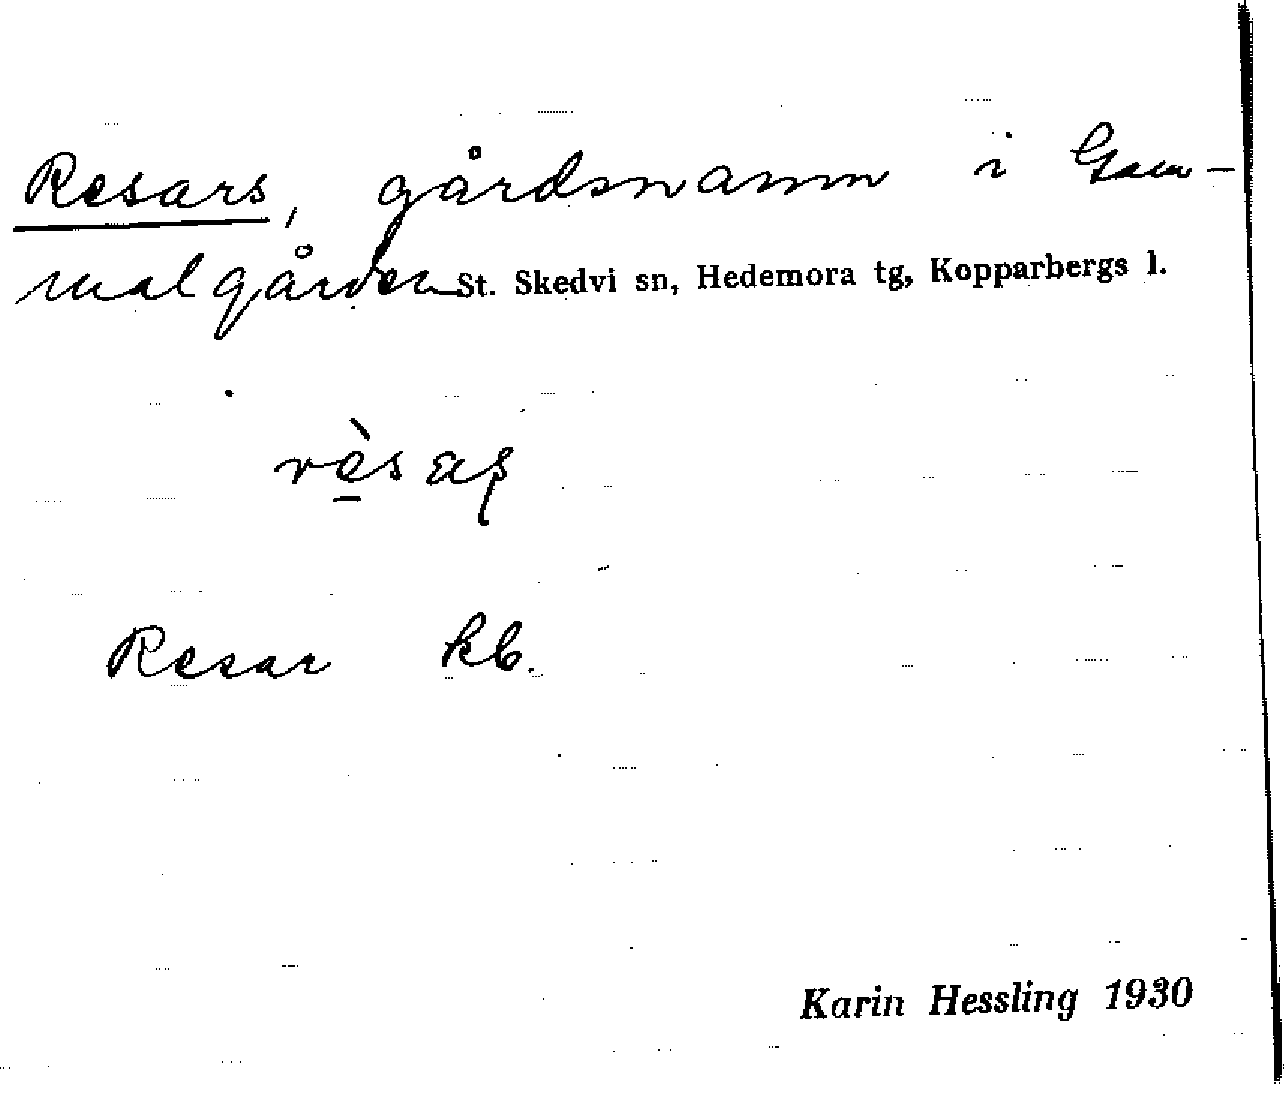 Resars, gårdsnamn i Gam-
malgården St. Skedvi sn, Hedemora tg, Kopparbergs l.
Resar kb.
Karin Hessling 1930